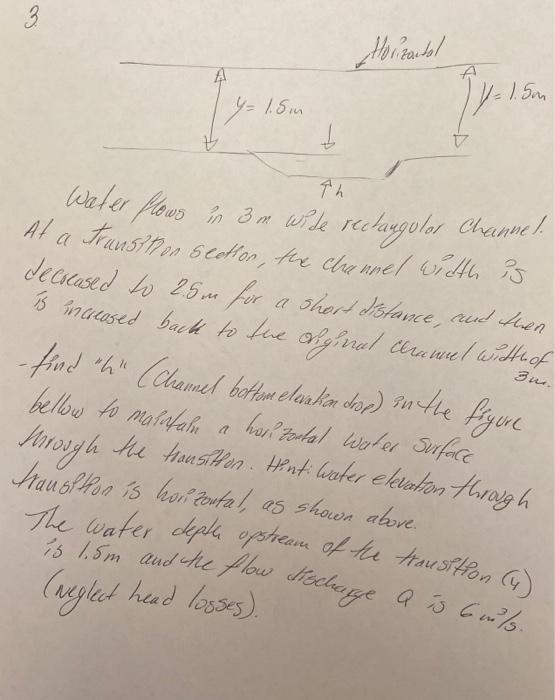 3.
Horizontal
y= 1.5m
y= 1.5m
h
Water flows in 3m wide rectangular channel.
At a transition section, the channel width is
decreased to 2.5m for a short distance, and then
is increased back to the original channel width of
3m.
- find "h" (Channel bottom elevation drop) in the figure
bellow to maintain a horizontal water surface
through the transition. Hint: Water elevation through
transition is horizontal, as shown above.
The water depth upstream of the transition (y)
is 1.5m and the flow discharge Q is 6 m³/s.
(neglect head losses).